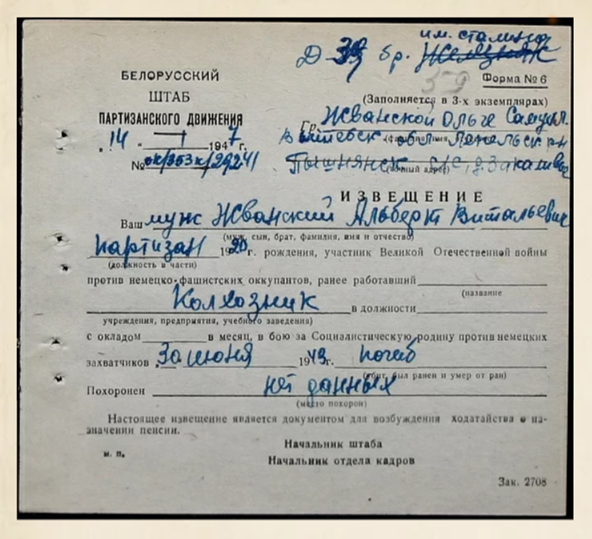 им. Сталина
Д-39 бр. Железняк
359
Форма № 6
БЕЛОРУССКИЙ
ШТАБ
ПАРТИЗАНСКОГО ДВИЖЕНИЯ
14 — I 1947 г.
№
(Заполняется в 3-х экземплярах)
Гр. Жванской Ольге Самуил.
Витебск обл Лепельск р-н
Пышнянск. с/с, д.
ИЗВЕЩЕНИЕ
Ваш муж Жванский Альберт Витальевич
(муж, сын, брат, фамилия, имя и отчество)
партизан 1920 г. рождения, участник Великой Отечественной войны
(должность в части)
против немецко-фашистских оккупантов, ранее работавший
(название
Колхозник в должности
учреждения, предприятия, учебного заведения)
с окладом в месяц, в бою за Социалистическую родину против немецких
захватчиков 30 июня 1943 г. погиб
(убит, был ранен и умер от ран)
Похоронен нет данных
(место похорон)
Настоящее извещение является документом для возбуждения ходатайства о на-
значении пенсии.
Начальник штаба
м. п.
Начальник отдела кадров
Зак. 2708